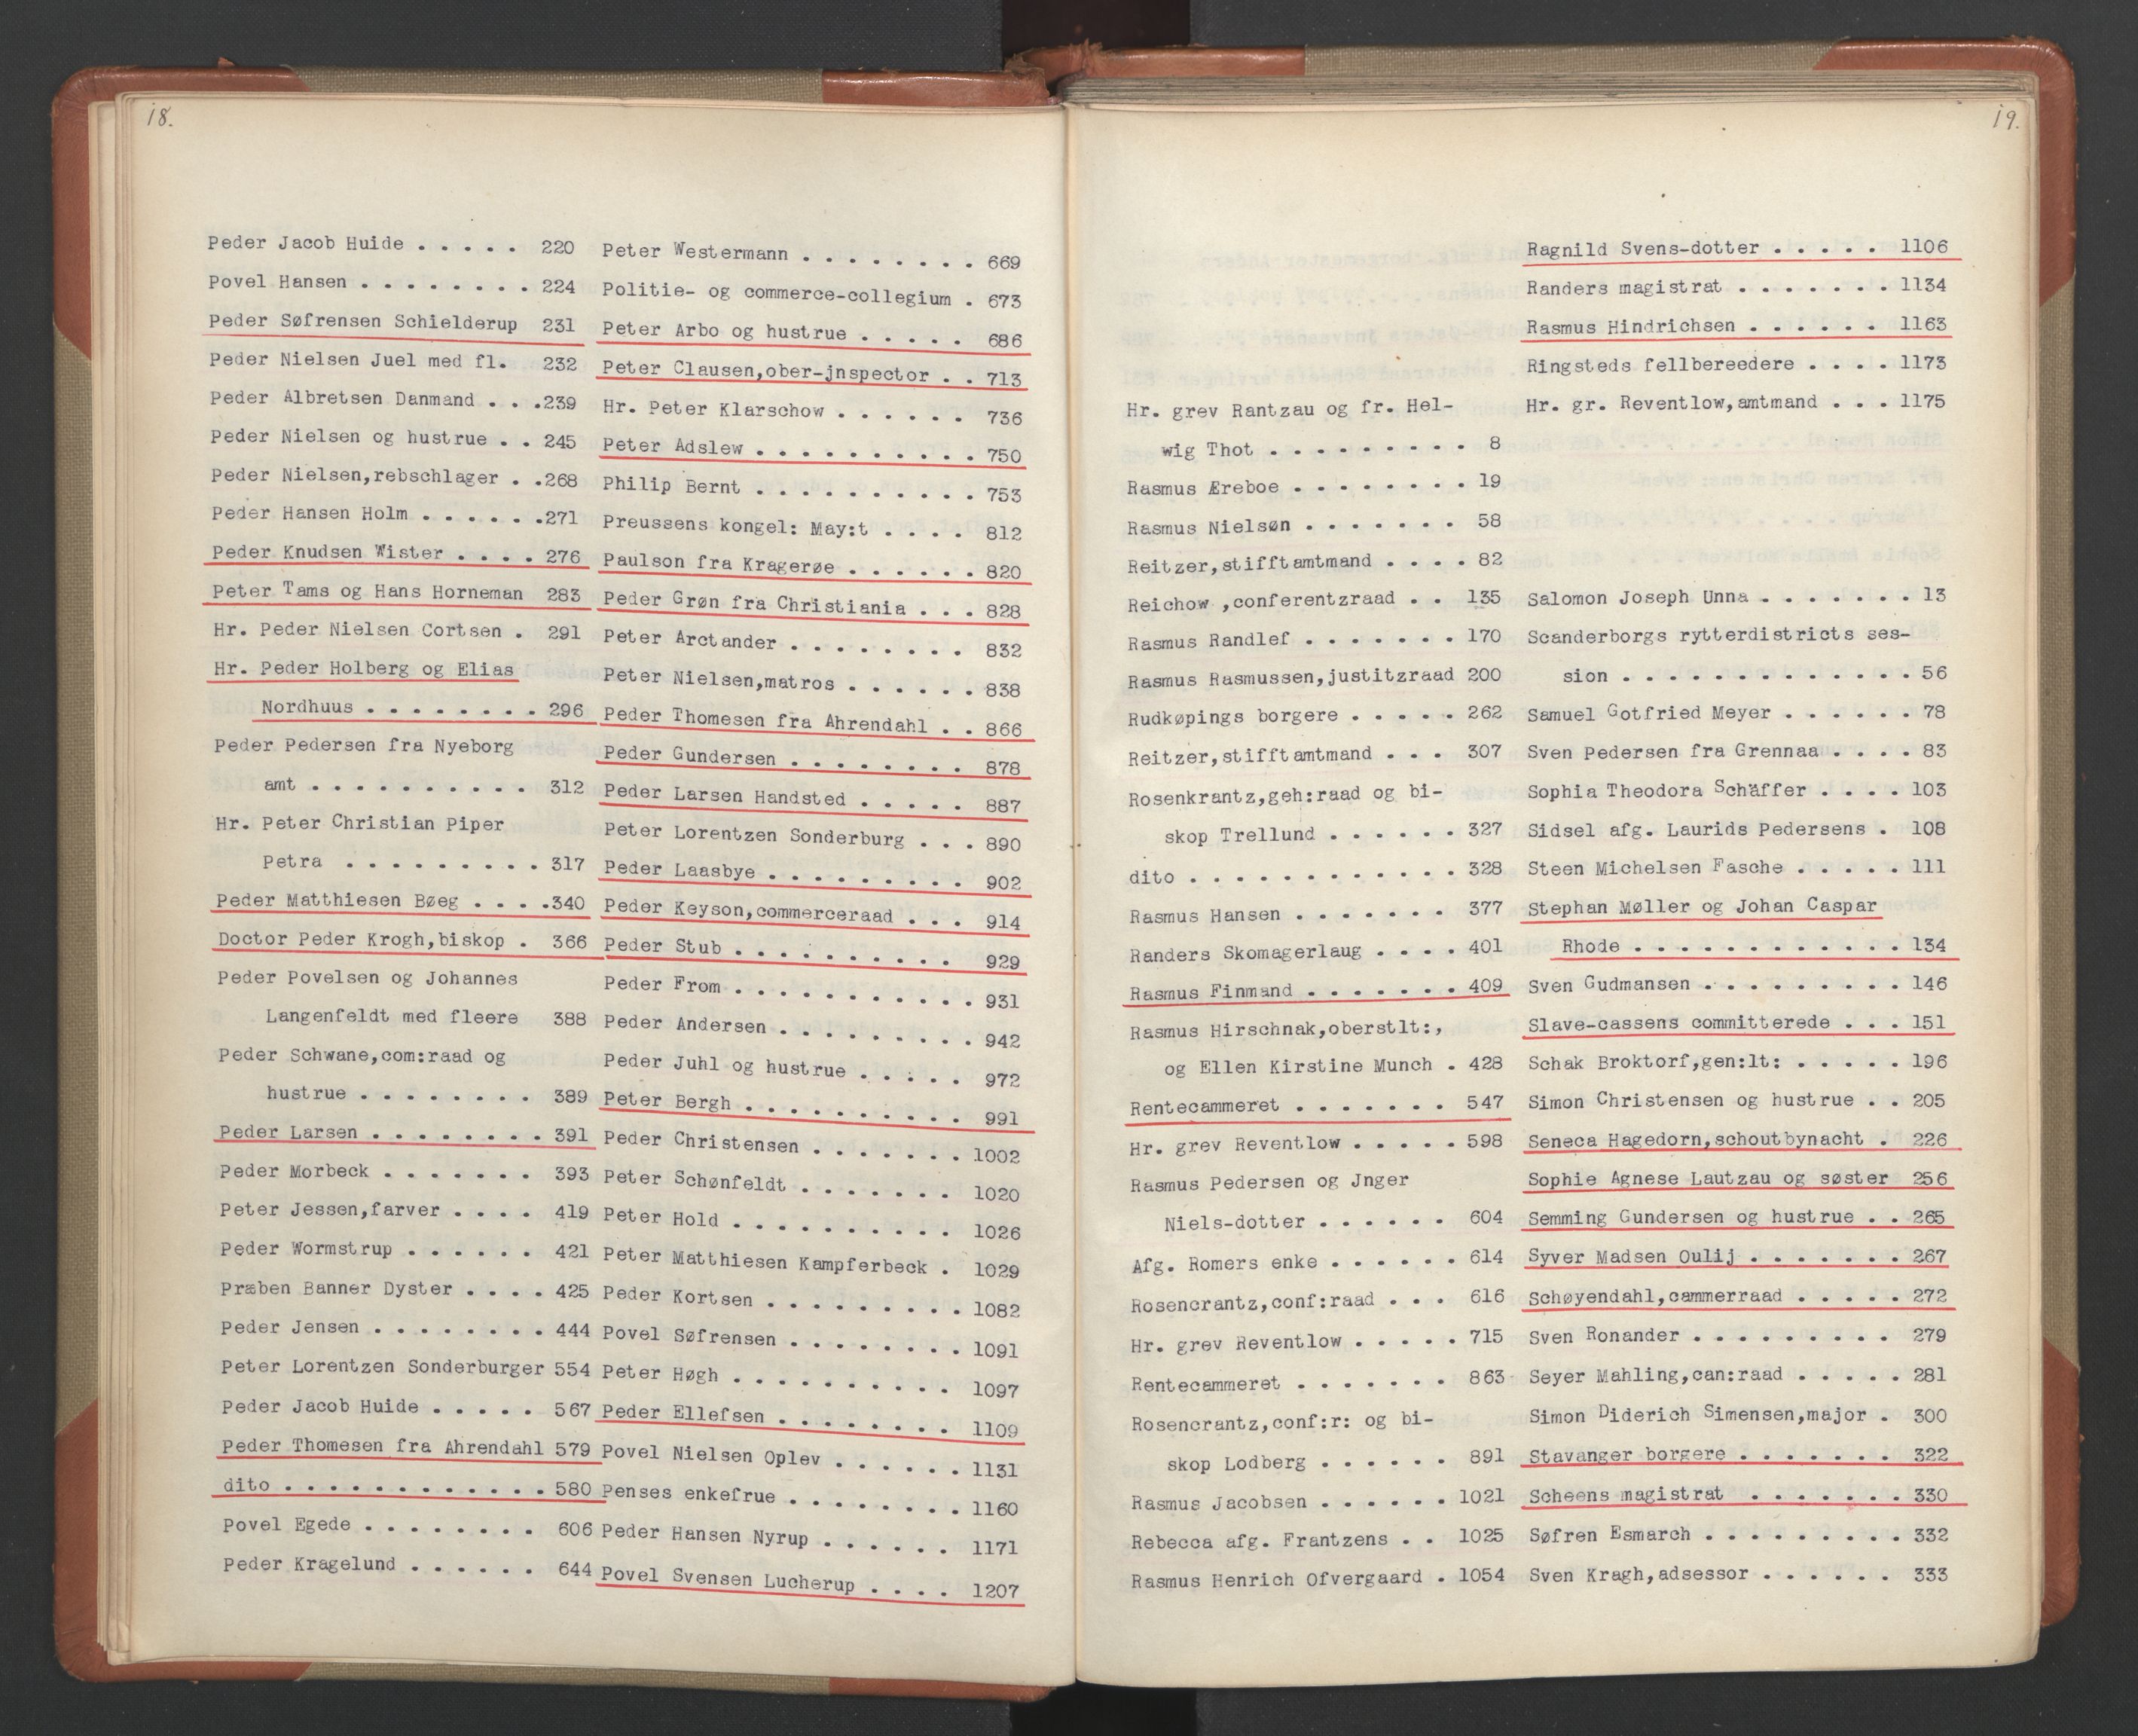 18.
Peder Jacob Huide . . . . . 220
Povel Hansen . . . . . . . . 224
Peder Søfrensen Schielderup 231
Peder Nielsen Juel med fl. 232
Peder Albretsen Danmand . . .239
Peder Nielsen og hustrue . . 245
Peder Nielsen,rebschlager . .268
Peder Hansen Holm . . . . . .271
Peder Knudsen Wister . . . . 276
Peter Tams og Hans Horneman 283
Hr. Peder Nielsen Cortsen . 291
Hr. Peder Holberg og Elias
Nordhuus . . . . . . . . 296
Peder Pedersen fra Nyeborg
amt . . . . . . . . . . 312
Hr. Peter Christian Piper
Petra . . . . . . . . . 317
Peder Matthiesen Bøeg . . . .340
Doctor Peder Krogh,biskop . 366
Peder Povelsen og Johannes
Langenfeldt med fleere 388
Peder Schwane,com:raad og
hustrue . . . . . . . . 389
Peder Larsen . . . . . . . . 391
Peder Morbeck . . . . . . . 393
Peter Jessen,farver . . . . 419
Peder Wormstrup . . . . . . 421
Præben Banner Dyster . . . . 425
Peder Jensen . . . . . . . . 444
Peter Lorentzen Sonderburger 554
Peder Jacob Huide . . . . . 567
Peder Thomesen fra Ahrendahl 579
dito . . . . . . . . . . . . 580
Povel Egede . . . . . . . . 606
Peder Kragelund . . . . . . 644
Peter Westermann . . . . . . . . 669
Politie- og commerce-collegium . 673
Peter Arbo og hustrue . . . . . 686
Peter Clausen,ober-jnspector . . 713
Hr. Peter Klarschow . . . . . . 736
Peter Adslew . . . . . . . . . . 750
Philip Bernt . . . . . . . . . . 753
Preussens kongel: May:t . . . . 812
Paulson fra Kragerøe . . . . . . 820
Peder Grøn fra Christiania . . . 828
Peter Arctander . . . . . . . . 832
Peter Nielsen,matros . . . . . . 838
Peder Thomesen fra Ahrendahl . . 866
Peder Gundersen . . . . . . . . 878
Peder Larsen Handsted . . . . . 887
Peter Lorentzen Sonderburg . . . 890
Peder Laasbye . . . . . . . . . 902
Peder Keyson,commerceraad . . . 914
Peder Stub . . . . . . . . . . 929
Peder From . . . . . . . . . . . 931
Peder Andersen . . . . . . . . . 942
Peder Juhl og hustrue . . . . . 972
Peter Bergh . . . . . . . . . . 991
Peder Christensen . . . . . . . 1002
Peter Schønfeldt . . . . . . . 1020
Peter Hold . . . . . . . . . . 1026
Peter Matthiesen Kampferbeck . 1029
Peder Kortsen . . . . . . . . . 1082
Povel Søfrensen . . . . . . . . 1091
Peter Høgh . . . . . . . . . . 1097
Peder Ellefsen . . . . . . . . 1109
Povel Nielsen Oplev . . . . . . 1131
Penses enkefrue . . . . . . . . 1160
Peder Hansen Nyrup . . . . . . 1171
Povel Svensen Lucherup . . . . 1207
19.
Hr. grev Rantzau og fr. Hel-
wig Thot . . . . . . . . . 8
Rasmus Æreboe . . . . . . . . 19
Rasmus Nielsøn . . . . . . . 58
Reitzer,stifftamtmand . . . . 82
Reichow ,conferentzraad . . 135
Rasmus Randlef . . . . . . . 170
Rasmus Rasmussen,justitzraad 200
Rudkøpings borgere . . . . . 262
Reitzer,stifftamtmand . . . 307
Rosenkrantz,geh:raad og bi-
skop Trellund . . . . . . 327
dito . . . . . . . . . . . . 328
Rasmus Hansen . . . . . . . 377
Randers Skomagerlaug . . . . 401
Rasmus Finmand . . . . . . . 409
Rasmus Hirschnak,oberstlt:,
og Ellen Kirstine Munch . 428
Rentecammeret . . . . . . . 547
Hr. grev Reventlow . . . . . 598
Rasmus Pedersen og Jnger
Niels-dotter . . . . . . 604
Afg. Romers enke . . . . . . 614
Rosencrantz,conf:raad . . . 616
Hr. grev Reventlow . . . . . 715
Rentecammeret . . . . . . . 863
Rosencrantz,conf:r: og bi-
skop Lodberg . . . . . . 891
Rasmus Jacobsen . . . . . . 1021
Rebecca afg. Frantzens . . 1025
Rasmus Henrich Ofvergaard . 1054
Ragnild Svens-dotter . . . . . 1106
Randers magistrat . . . . . . . 1134
Rasmus Hindrichsen . . . . . . 1163
Ringsteds fellbereedere . . . . 1173
Hr. gr. Reventlow,amtmand . . . 1175
Salomon Joseph Unna . . . . . . . 13
Scanderborgs rytterdistricts ses-
sion . . . . . . . . . . . . . 56
Samuel Gotfried Meyer . . . . . . 78
Sven Pedersen fra Grennaa . . . . 83
Sophia Theodora Schäffer . . . . 103
Sidsel afg. Laurids Pedersens . 108
Steen Michelsen Fasche . . . . . 111
Stephan Møller og Johan Caspar
Rhode . . . . . . . . . . . . 134
Sven Gudmansen . . . . . . . . . 146
Slave-cassens committerede . . . 151
Schak Broktorf,gen:lt: . . . . . 196
Simon Christensen og hustrue . . 205
Seneca Hagedorn,schoutbynacht . 226
Sophie Agnese Lautzau og søster 256
Semming Gundersen og hustrue . . 265
Syver Madsen Oulij . . . . . . . 267
Schøyendahl,cammerraad . . . . . 272
Sven Ronander . . . . . . . . . 279
Seyer Mahling,can:raad . . . . . 281
Simon Diderich Simensen,major . 300
Stavanger borgere . . . . . . . 322
Scheens magistrat . . . . . . . 330
Søfren Esmarch . . . . . . . . . 332
Sven Kragh,adsessor . . . . . . 333